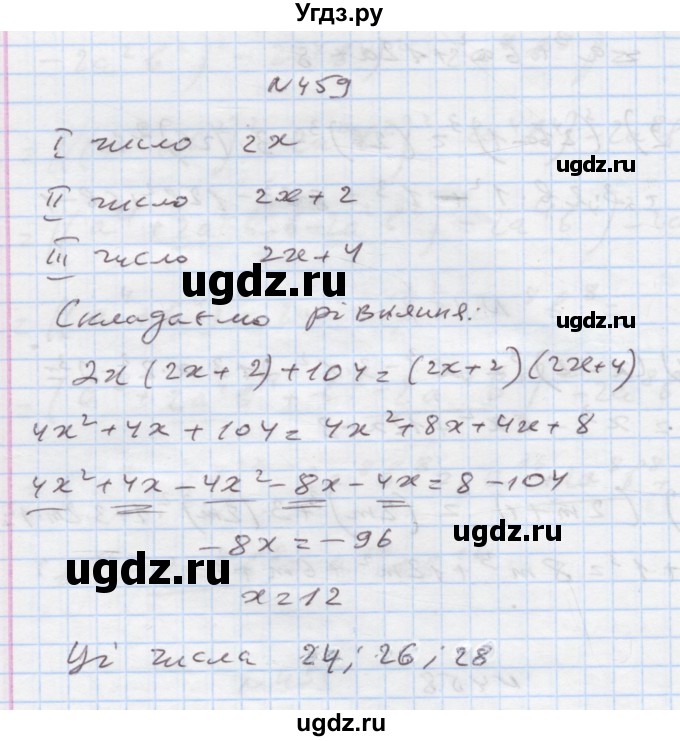 Угдз.ру
N459
ugdz.ru
I число 2x
ugdz.ru
II число 2x+2
III число 2x+4
ugdz.ru
ugdz.ru
Складаємо рівняння:
ugdz.ru
2x(2x+2)+104=(2x+2)(2x+4)
4x²+4x+104=4x²+8x+4x+8
4x²+4x-4x²-8x-4x=8-104
-8x=-96
ugdz.ru
ugdz.ru
x=12
ugdz.ru
Ці числа 24; 26; 28
ugdz.ru
ugdz.ru